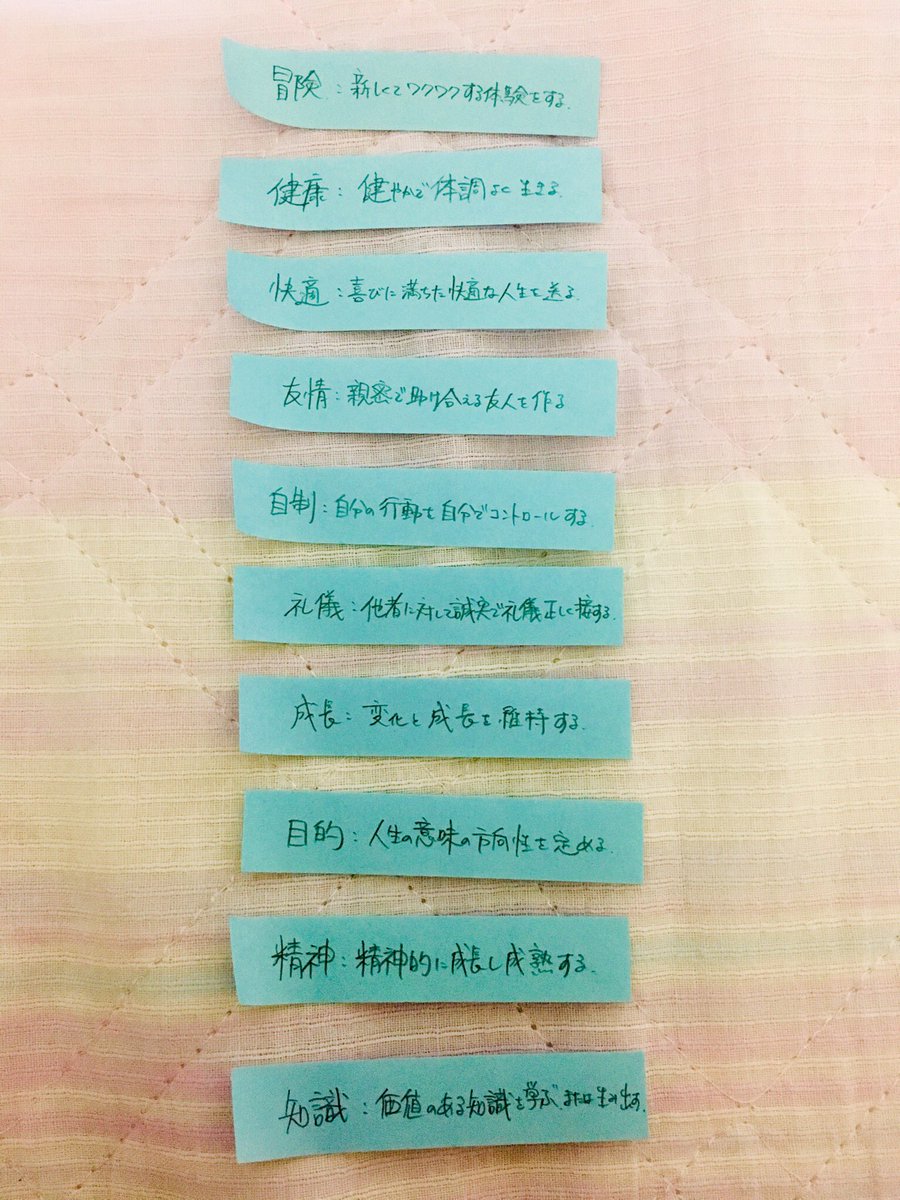 冒険：新しくてワクワクする体験をする.
健康：健やかで体調よく生きる.
快適：喜びに満ちた快適な人生を送る.
友情：親密で助け合える友人を作る
自制：自分の行動を自分でコントロールする.
礼儀：他者に対して誠実で礼儀正しく接する.
成長：変化と成長を維持する.
目的：人生の意味の方向性を定める.
精神：精神的に成長し成熟する.
知識：価値のある知識を学ぶ、または生み出す.